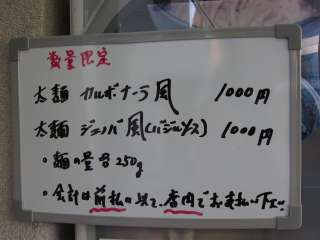 数量限定
太麺 カルボナーラ風 1000円
太麺 ジェノバ風(バジルソース) 1000円
・麺の量各250g
・会計は前払の以上、店内でお支払い下さい